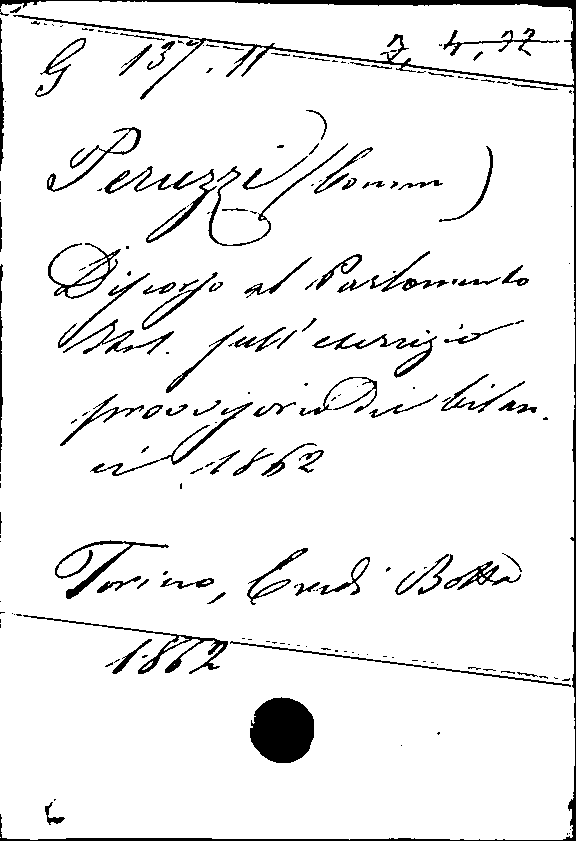 G 137.11 3, 4, 32
Peruzzi (Comm)
Discorso al Parlamento
Ital. sull'esercizio
provvisorio dei bilan.
ci 1862
Torino, Eredi Botta
1862